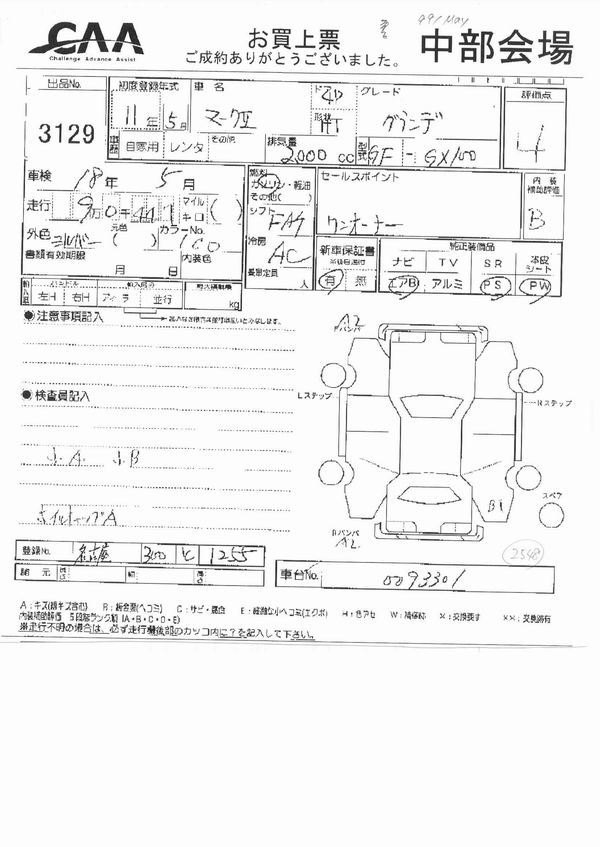 CAA
Challenge Advance Assist
お買上票
ご成約ありがとうございました。
'99/May
中部会場
出品No. 3129
初度登録年式 11年 5月
車歴 自家用 レンタ その他
車名 マークⅡ
ドア 4D
形状 HT
グレード グランデ
排気量 2000 cc
型式 GF-GX100
評価点 4
車検 18年 5月
走行 9万0千441 マイル キロ ( )
外色 シルバー 元色 ( ) カラーNo. 1C0
書類有効期限 月 日
内装色
燃料 ガソリン・軽油 その他( )
シフト FAT
冷房 AC
乗車定員 人
セールスポイント
ワンオーナー
内装 補助評価 B
新車保証書 有 無
純正装備品
ナビ TV SR 本皮シート
エアB アルミ PS PW
左H 右H 並行 kg
●注意事項記入
●検査員記入
小A 小B
ホイルキャップA
A2
Fバンパ
Lステップ
Rステップ
B1
スペア
Rバンパ
A2
2548
登録No. 名古屋 300 1255
車台No. 0093301
内装補助評価 5段階ランク順 (A・B・C・D・E)
※走行不明の場合は、必ず走行欄後部のカッコ内に?を記入して下さい。